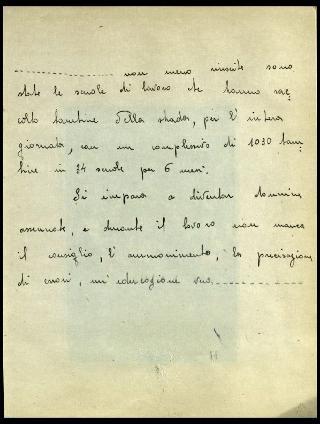 ------------ non meno riuscite sono
state le scuole di lavoro che hanno rac=
colto bambine dalla strada, per l'intera
giornata, con un complessivo di 1030 bam=
bine in 34 scuole per 6 mesi.
Si impara a diventar donnine
assennate, e durante il lavoro non manca
il consiglio, l'ammonimento, la precisazione
di errori, un'educazione vera.------------